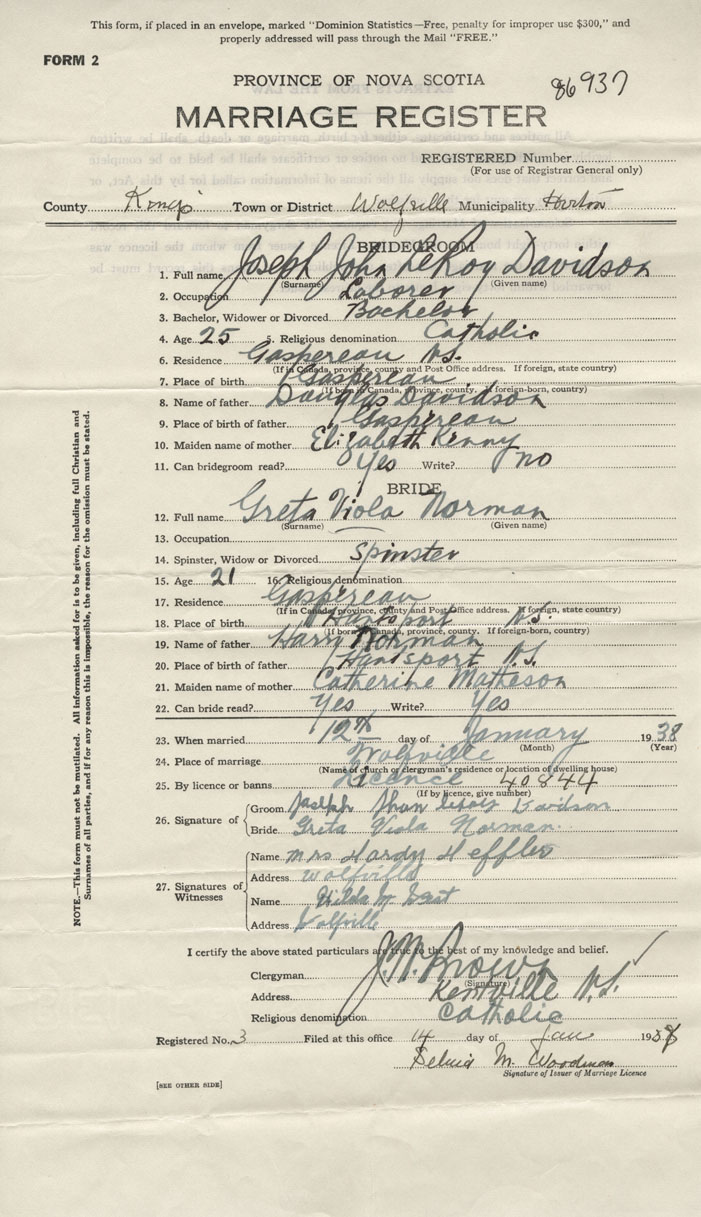 This form, if placed in an envelope, marked "Dominion Statistics—Free, penalty for improper use $300," and
properly addressed will pass through the Mail "FREE."
FORM 2
PROVINCE OF NOVA SCOTIA
86937
MARRIAGE REGISTER
REGISTERED Number
(For use of Registrar General only)
County Kings Town or District Wolfville Municipality Horton
BRIDEGROOM
1. Full name Joseph John LeRoy Davidson
(Surname) (Given name)
2. Occupation Laborer
3. Bachelor, Widower or Divorced Bachelor
4. Age 25 5. Religious denomination Catholic
6. Residence Gaspereau N.S.
(If in Canada, province, county and Post Office address. If foreign, state country)
7. Place of birth Gaspereau
(If born in Canada, province, county. If foreign-born, country)
8. Name of father Douglas Davidson
9. Place of birth of father Gaspereau
10. Maiden name of mother Elizabeth Kenny
11. Can bridegroom read? Yes Write? no
BRIDE
12. Full name Greta Viola Norman
(Surname) (Given name)
13. Occupation
14. Spinster, Widow or Divorced Spinster
15. Age 21 16. Religious denomination
17. Residence Gaspereau
(If in Canada, province, county and Post Office address. If foreign, state country)
18. Place of birth Hantsport N.S.
(If born in Canada, province, county. If foreign-born, country)
19. Name of father Harry Norman
20. Place of birth of father Hantsport N.S.
21. Maiden name of mother Catherine Matheson
22. Can bride read? Yes Write? Yes
23. When married 12th day of January 1938
(Month) (Year)
24. Place of marriage Wolfville
(Name of church or clergyman's residence or location of dwelling house)
25. By licence or banns Licence 40844
(If by licence, give number)
26. Signature of
Groom Joseph Davidson
Bride Greta Viola Norman
27. Signatures of Witnesses
Name Mrs Hardy Heffler
Address Wolfville
Name Hilda M
Address Wolfville
I certify the above stated particulars are true to the best of my knowledge and belief.
Clergyman J. M. Brown
(Signature)
Address Kentville N.S.
Religious denomination Catholic
Registered No. 3 Filed at this office 14 day of Jan 1938
M. Woodman
Signature of Issuer of Marriage Licence
[SEE OTHER SIDE]
NOTE.—This form must not be mutilated. All information asked for is to be given, including full Christian and
Surnames of all parties, and if for any reason this is impossible, the reason for the omission must be stated.